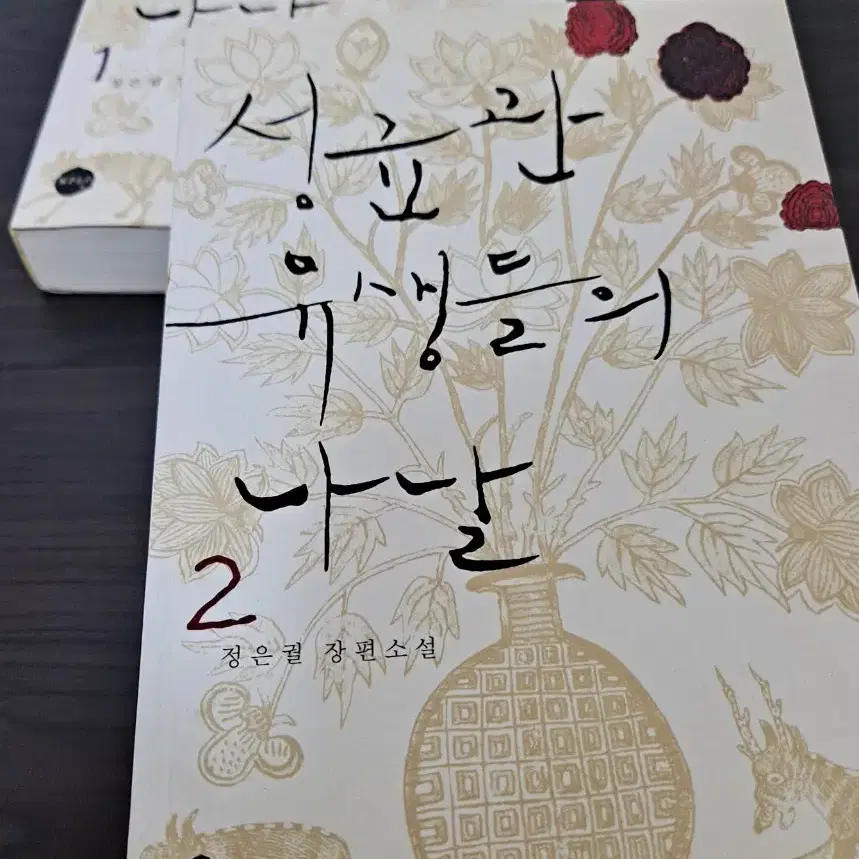 나날
1
정은궐
성균관
유생들의
나날
2
정은궐 장편소설